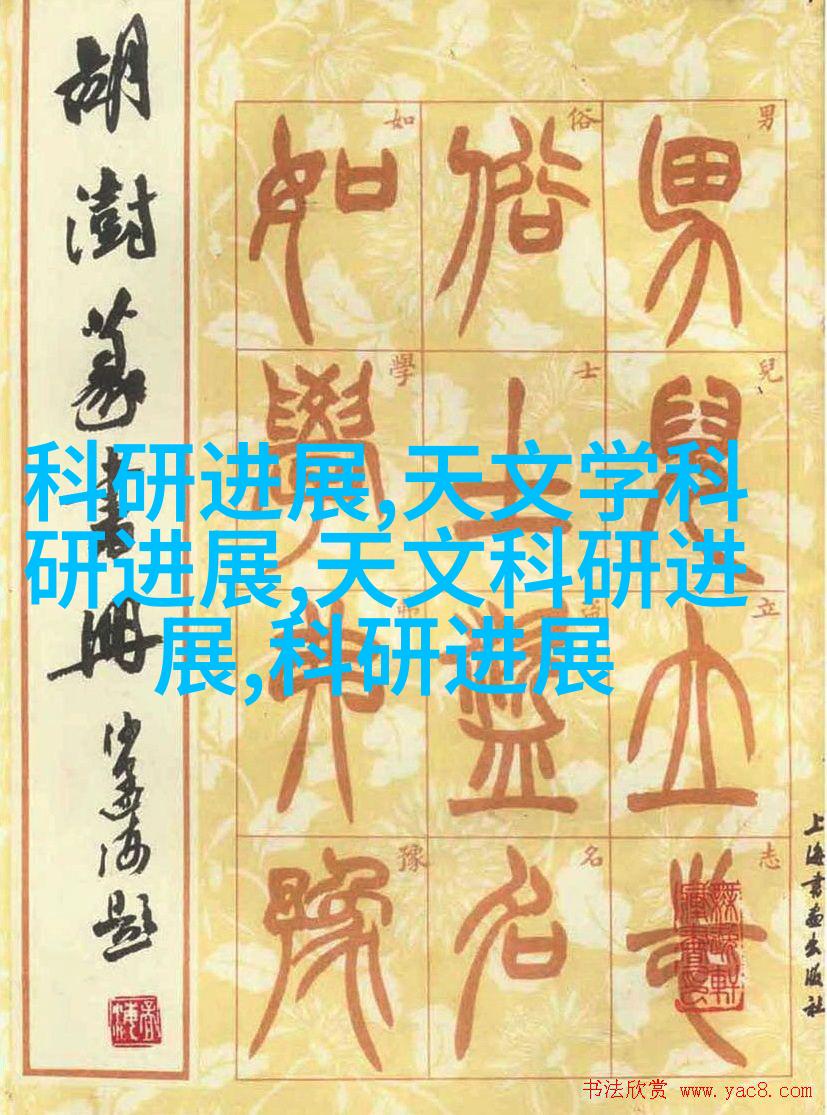 胡澍篆书册
沙孟海题
男
俗
如
兒
士
學
立
志
名
豫
科研进展,天文学科
研进展,天文科研进
展,科研进展
上海書画出版社
书法欣赏 www.yac8.com